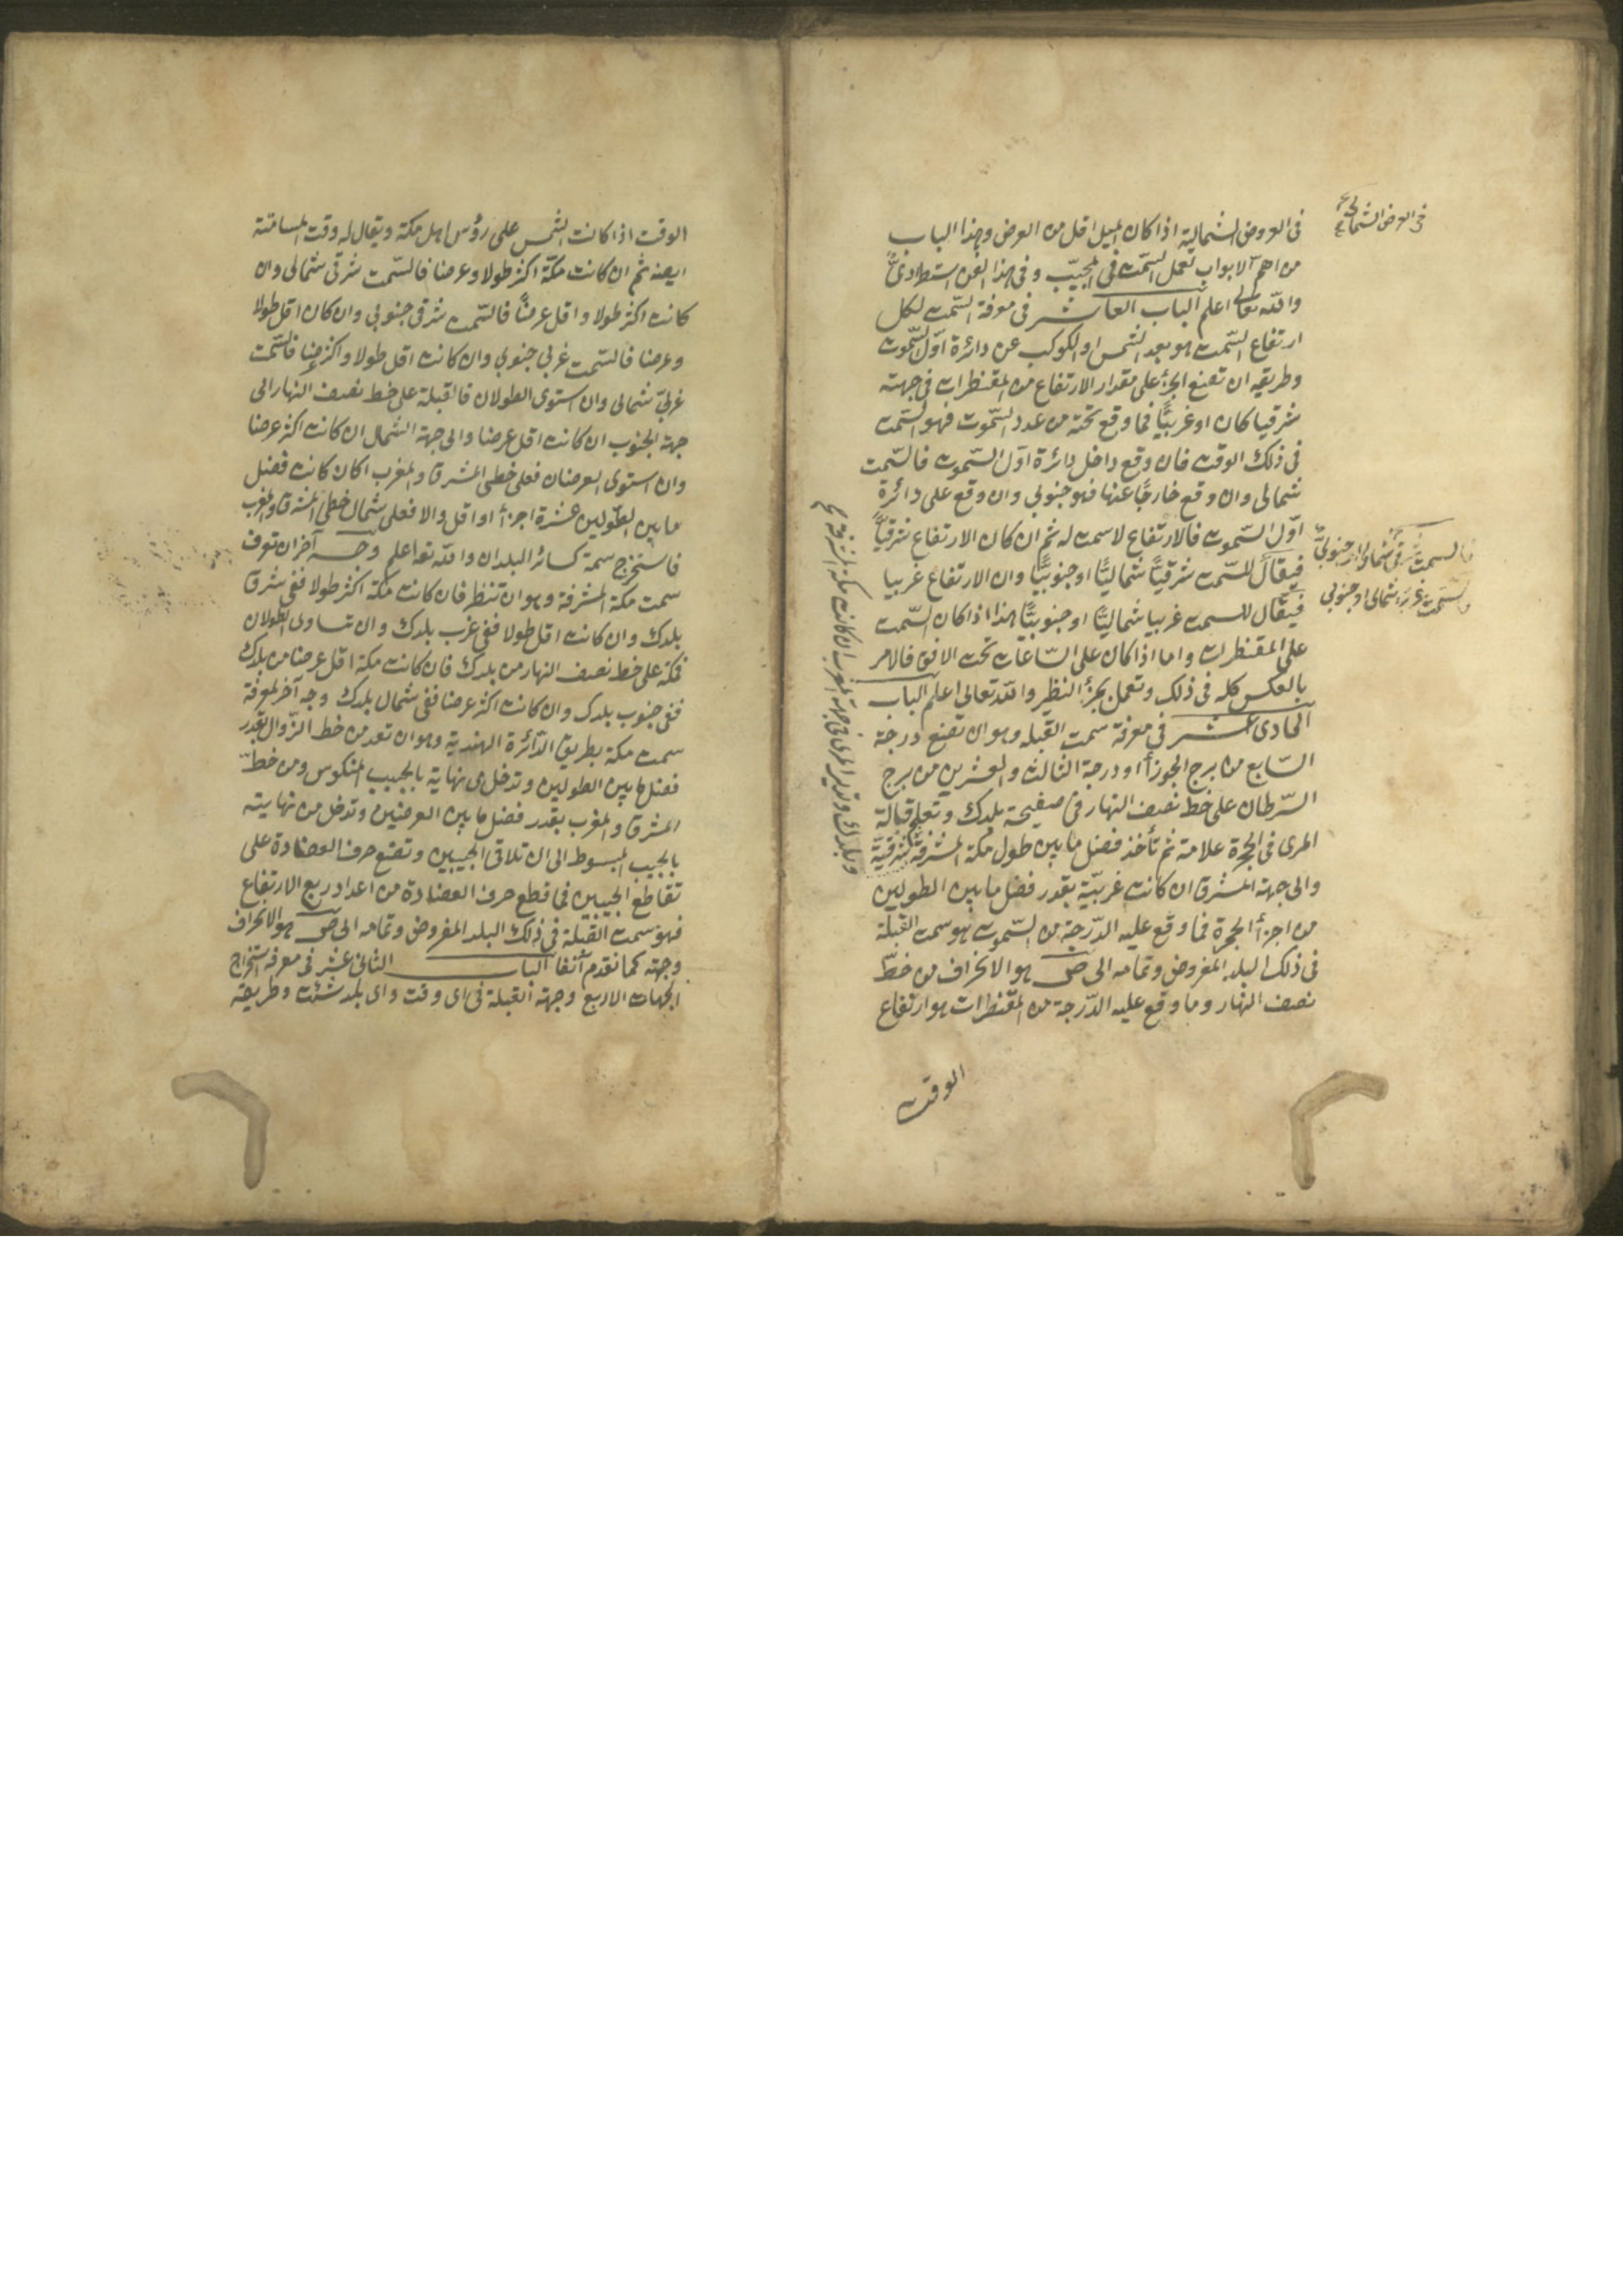 فى العروض الشمالية اذا كان الميل اقل من العرض وهذا الباب
من اهم الابواب لعمل السمت فى المجيب وفى هذا الفن استطرادى
والله تعالى اعلم الباب العاشر فى معرفة السمت لكل
ارتفاع السمت هو بعد الشمس او الكوكب عن دائرة اول السموت
وطريقه ان تضع الجزء على مقدار الارتفاع من المقنطرات فى جهته
شرقيا كان او غربيًا فما وقع تحته من عدد السموت فهو السمت
فى ذلك الوقت فان وقع داخل دائرة اول السموت فالسمت
شمالى وان وقع خارجًا عنها فهو جنوبى وان وقع على دائرة
اول السموت فالارتفاع لا سمت له ثم ان كان الارتفاع شرقيًا
فيقال للسمت شرقيًا شماليًا او جنوبيًا وان الارتفاع غربيا
فيقال للسمت غربيا شماليًا او جنوبيًا هذا اذا كان السمت
على المقنطرات واما اذا كان على الساعات تحت الافق فالامر
بالعكس كله فى ذلك وتعمل بجزء النظير والله تعالى اعلم الباب
الحادى عشر فى معرفة سمت القبله وهو ان تضع درجة
السابع من برج الجوزأ او درجة الثالث والعشرين من برج
السرطان على خط نصف النهار فى صفيحة بلدك وتعلم قبالة
المرى فى الحجرة علامة ثم تأخذ فضل ما بين طول مكة المشرفة شرقية
والى جهة المشرق ان كانت غربيّة بقدر فضل ما بين الطولين
من اجزأ الحجرة فما وقع عليه الدرجة من السموت هو سمت القبلة
فى ذلك البلد المفروض وتمامه الى ص هو الانحراف من خطّ
نصف النهار وما وقع عليه الدرجة من المقنطرات هو ارتفاع
الوقت
فى العرض الشمالى
فالسمت شرقى شمالى او جنوبى
فالسمت غربى شمالى او جنوبى
وبلدك وتدير المرى فى جهة المغرب ان كانت مكة المشرفة
الوقت اذا كانت الشمس على رؤس اهل مكة ويقال له وقت المسامتة
ايضه ثم ان كانت مكة اكثر طولا وعرضا فالسمت شرقى شمالى وان
كانت اكثر طولا واقل عرضًا فالسمت شرقى جنوبى وان كان اقل طولا
وعرضا فالسمت غربى جنوبى وان كانت اقل طولا واكثر عرضا فالسمت
غربىّ شمالى وان استوى الطولان فالقبلة على خط نصف النهار الى
جهة الجنوب ان كانت اقل عرضا والى جهة الشمال ان كانت اكثر عرضا
وان استوى العرضان فعلى خطى المشرق والمغرب اكان كانت فضل
ما بين الطولين عشرة اجزأ او اقل والا فعلى شمال خطى المشرق والمغرب
فاستخرج سمة كسائر البلدان والله تعا اعلم وجــه آخر ان تعرف
سمت مكة المشرفة وهو ان تنظر فان كانت مكة اكثر طولا ففى شرق
بلدك وان كانت اقل طولا ففى غرب بلدك وان تساوى الطولان
فمكة على خط نصف النهار من بلدك فان كانت مكة اقل عرضا من بلدك
ففى جنوب بلدك وان كانت اكثر عرضا ففى شمال بلدك وجه آخر لمعرفة
سمت مكة بطريق الدّائرة الهندية وهو ان تعد من خط الزّوال بقدر
فضل ما بين الطولين وتدخل من نهاية بالجيب المنكوس ومن خطّ
المشرق والمغرب بقدر فضل ما بين العرضين وتدخل من نهايته
بالجيب المبسوط الى ان تلاقى الجيبين وتضع حرف العضادة على
تقاطع الجيبين فما قطع حرف العضادة من اعداد ربع الارتفاع
فهو سمت القبلة فى ذلك البلد المفروض وتمامه الى ص هو الانحراف
وجهته كما تقدم آنفا الباب الثانى عشر فى معرفة استخراج
الجهات الاربع وجهة القبلة فى اى وقت واى بلد شئت وطريقه